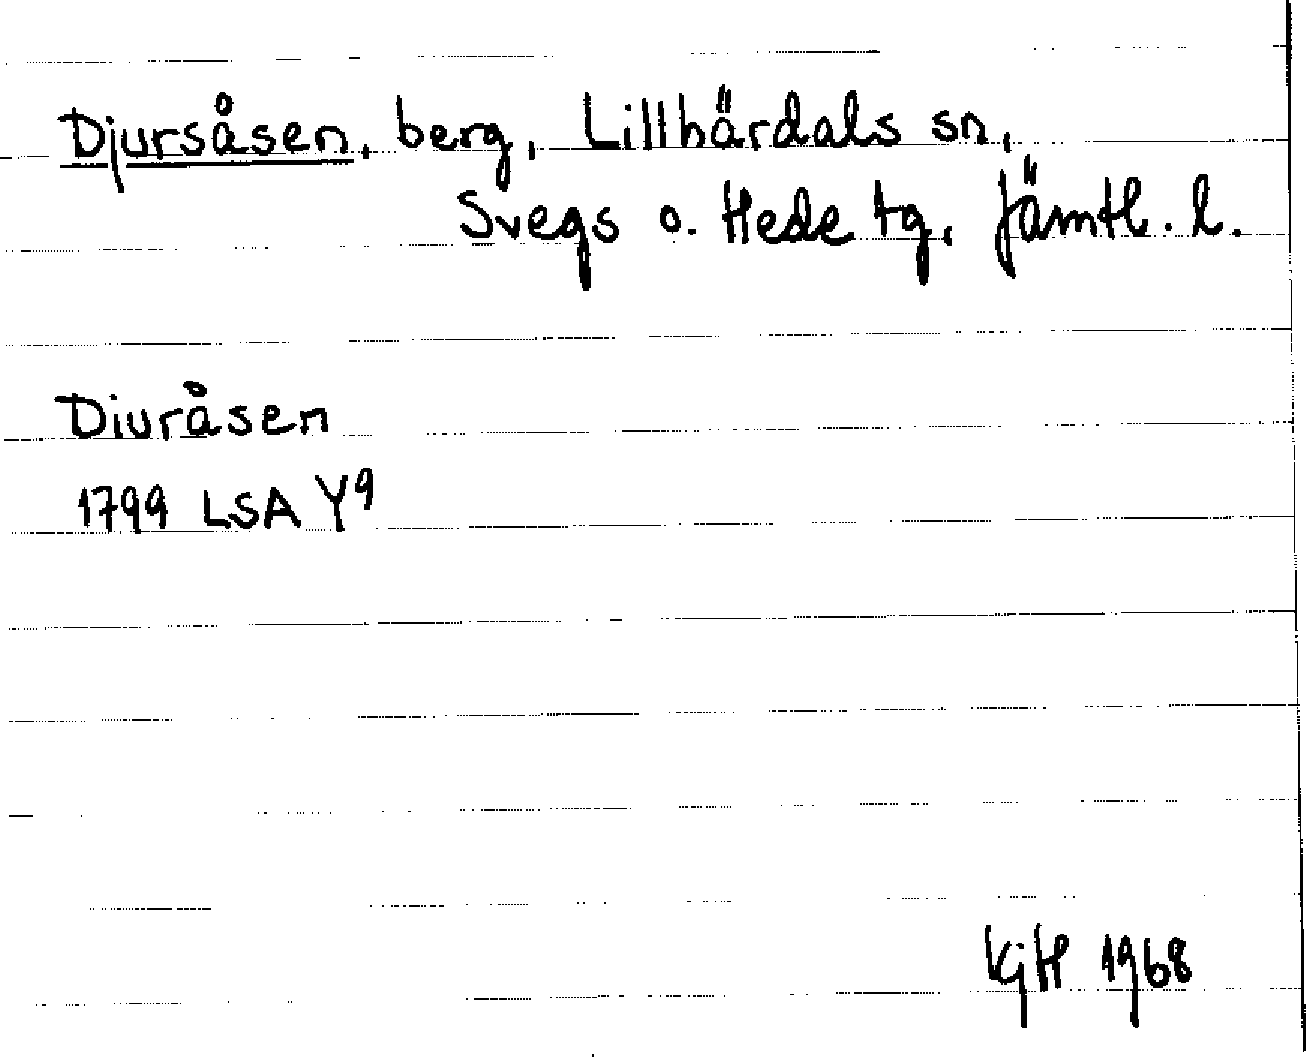 Djursåsen, berg, Lillhärdals sn,
Svegs o. Hede tg, Jämtl. l.
Diuråsen
1799 LSA Y9
KjH 1968